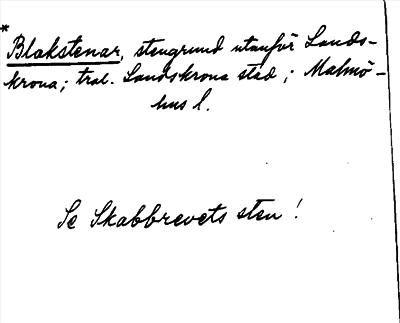 *
Blakstenar, stengrund utanför Lands-
krona; tral. Landskrona stad; Malmö-
hus l.
Se Skabbrevets sten!